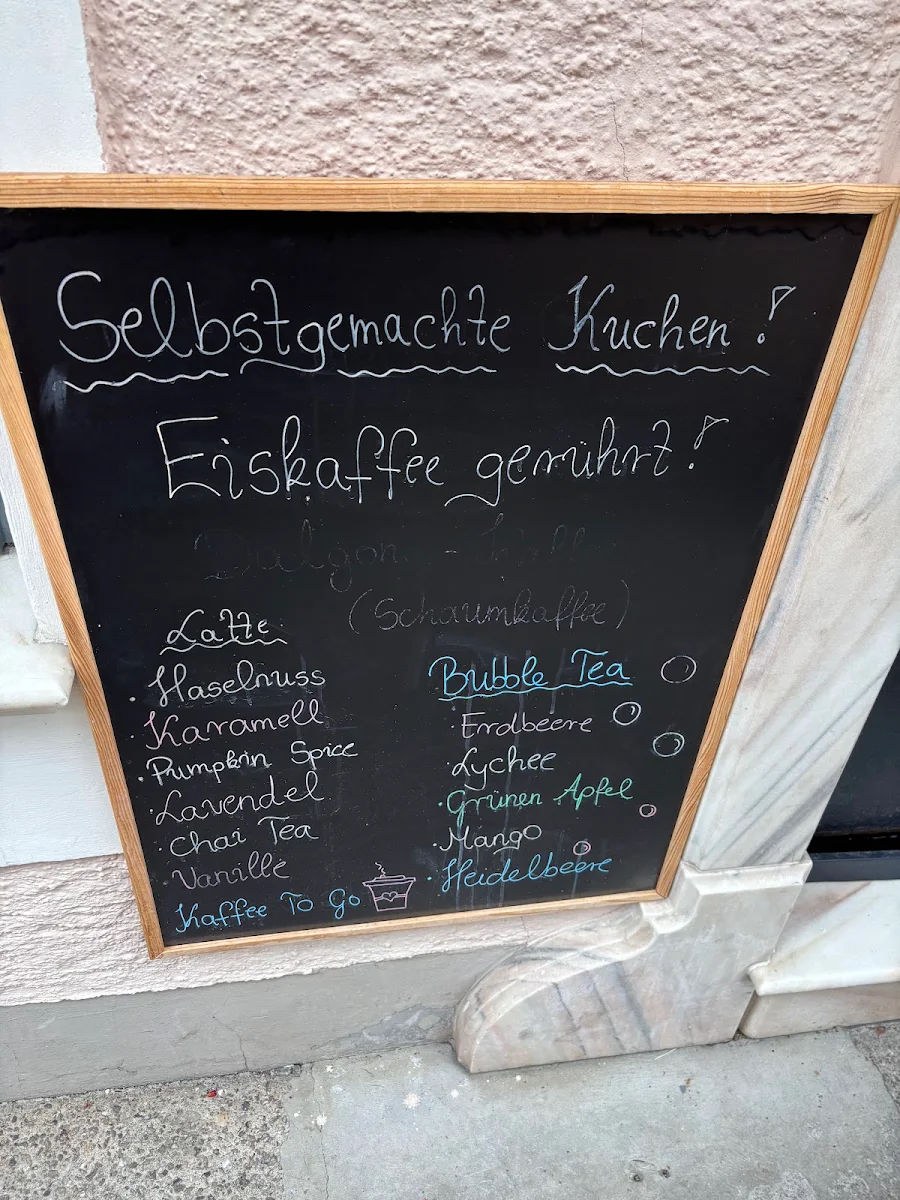 Selbstgemachte Kuchen!
Eiskaffee gerührt!
Dalgona -
(Schaumkaffee)
Latte
· Haselnuss
· Karamell
· Pumpkin Spice
· Lavendel
· Chai Tea
· Vanille
Kaffee To Go
Bubble Tea
· Erdbeere
· Lychee
· Grünen Apfel
· Mango
· Heidelbeere